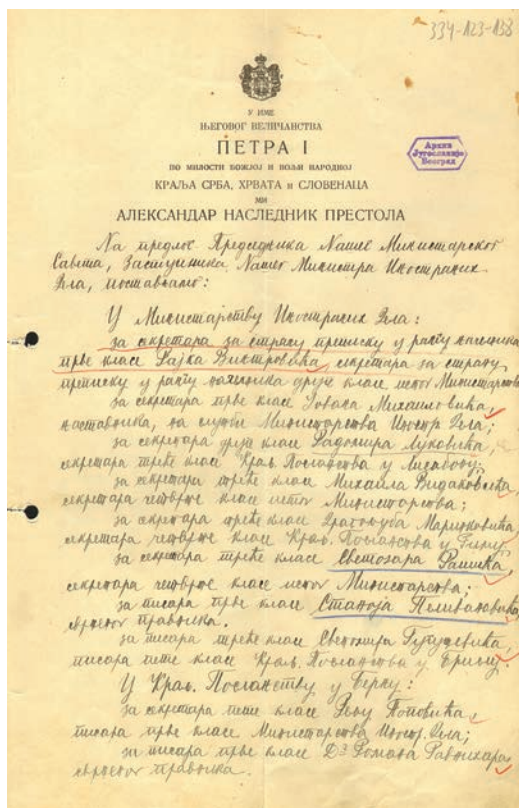 334-123-138
У ИМЕ
ЊЕГОВОГ ВЕЛИЧАНСТВА
ПЕТРА I
ПО МИЛОСТИ БОЖЈОЈ И ВОЉИ НАРОДНОЈ
КРАЉА СРБА, ХРВАТА И СЛОВЕНАЦА
МИ
АЛЕКСАНДАР НАСЛЕДНИК ПРЕСТОЛА
Архив
Југославије
Београд
На предлог Председника Нашег Министарског
Савета, Заступника Нашег Министра Иностраних
Дела, постављамо:
У Министарству Иностраних Дела:
за секретара за страну преписку у рангу начелника
прве класе Рајка Винтровића, секретара за страну
преписку у рангу начелника друге класе истог Министарства
за секретара прве класе Јована Михаиловића,
наставника, на служби Министарства Иностр. Дела;
за секретара друге класе Радомира Луковића,
секретара треће класе Краљ. Посланства у Лисабону;
за секретара треће класе Михаила Видаковића,
секретара четврте класе истог Министарства;
за секретара треће класе Драгољуба Маринковића,
секретара четврте класе Краљ. Посланства у
за секретара треће класе Светозара Рашића,
секретара четврте класе истог Министарства;
за писара прве класе Станоја Пеливановића
свршеног правника.
за писара треће класе Светомира
писара пете класе Краљ. Посланства у Берну.
У Краљ. Посланству у Берну:
за секретара пете класе Поповића,
писара прве класе Министарства Иностр. Дела;
за писара прве класе Др Романа Равнихара
свршеног правника.